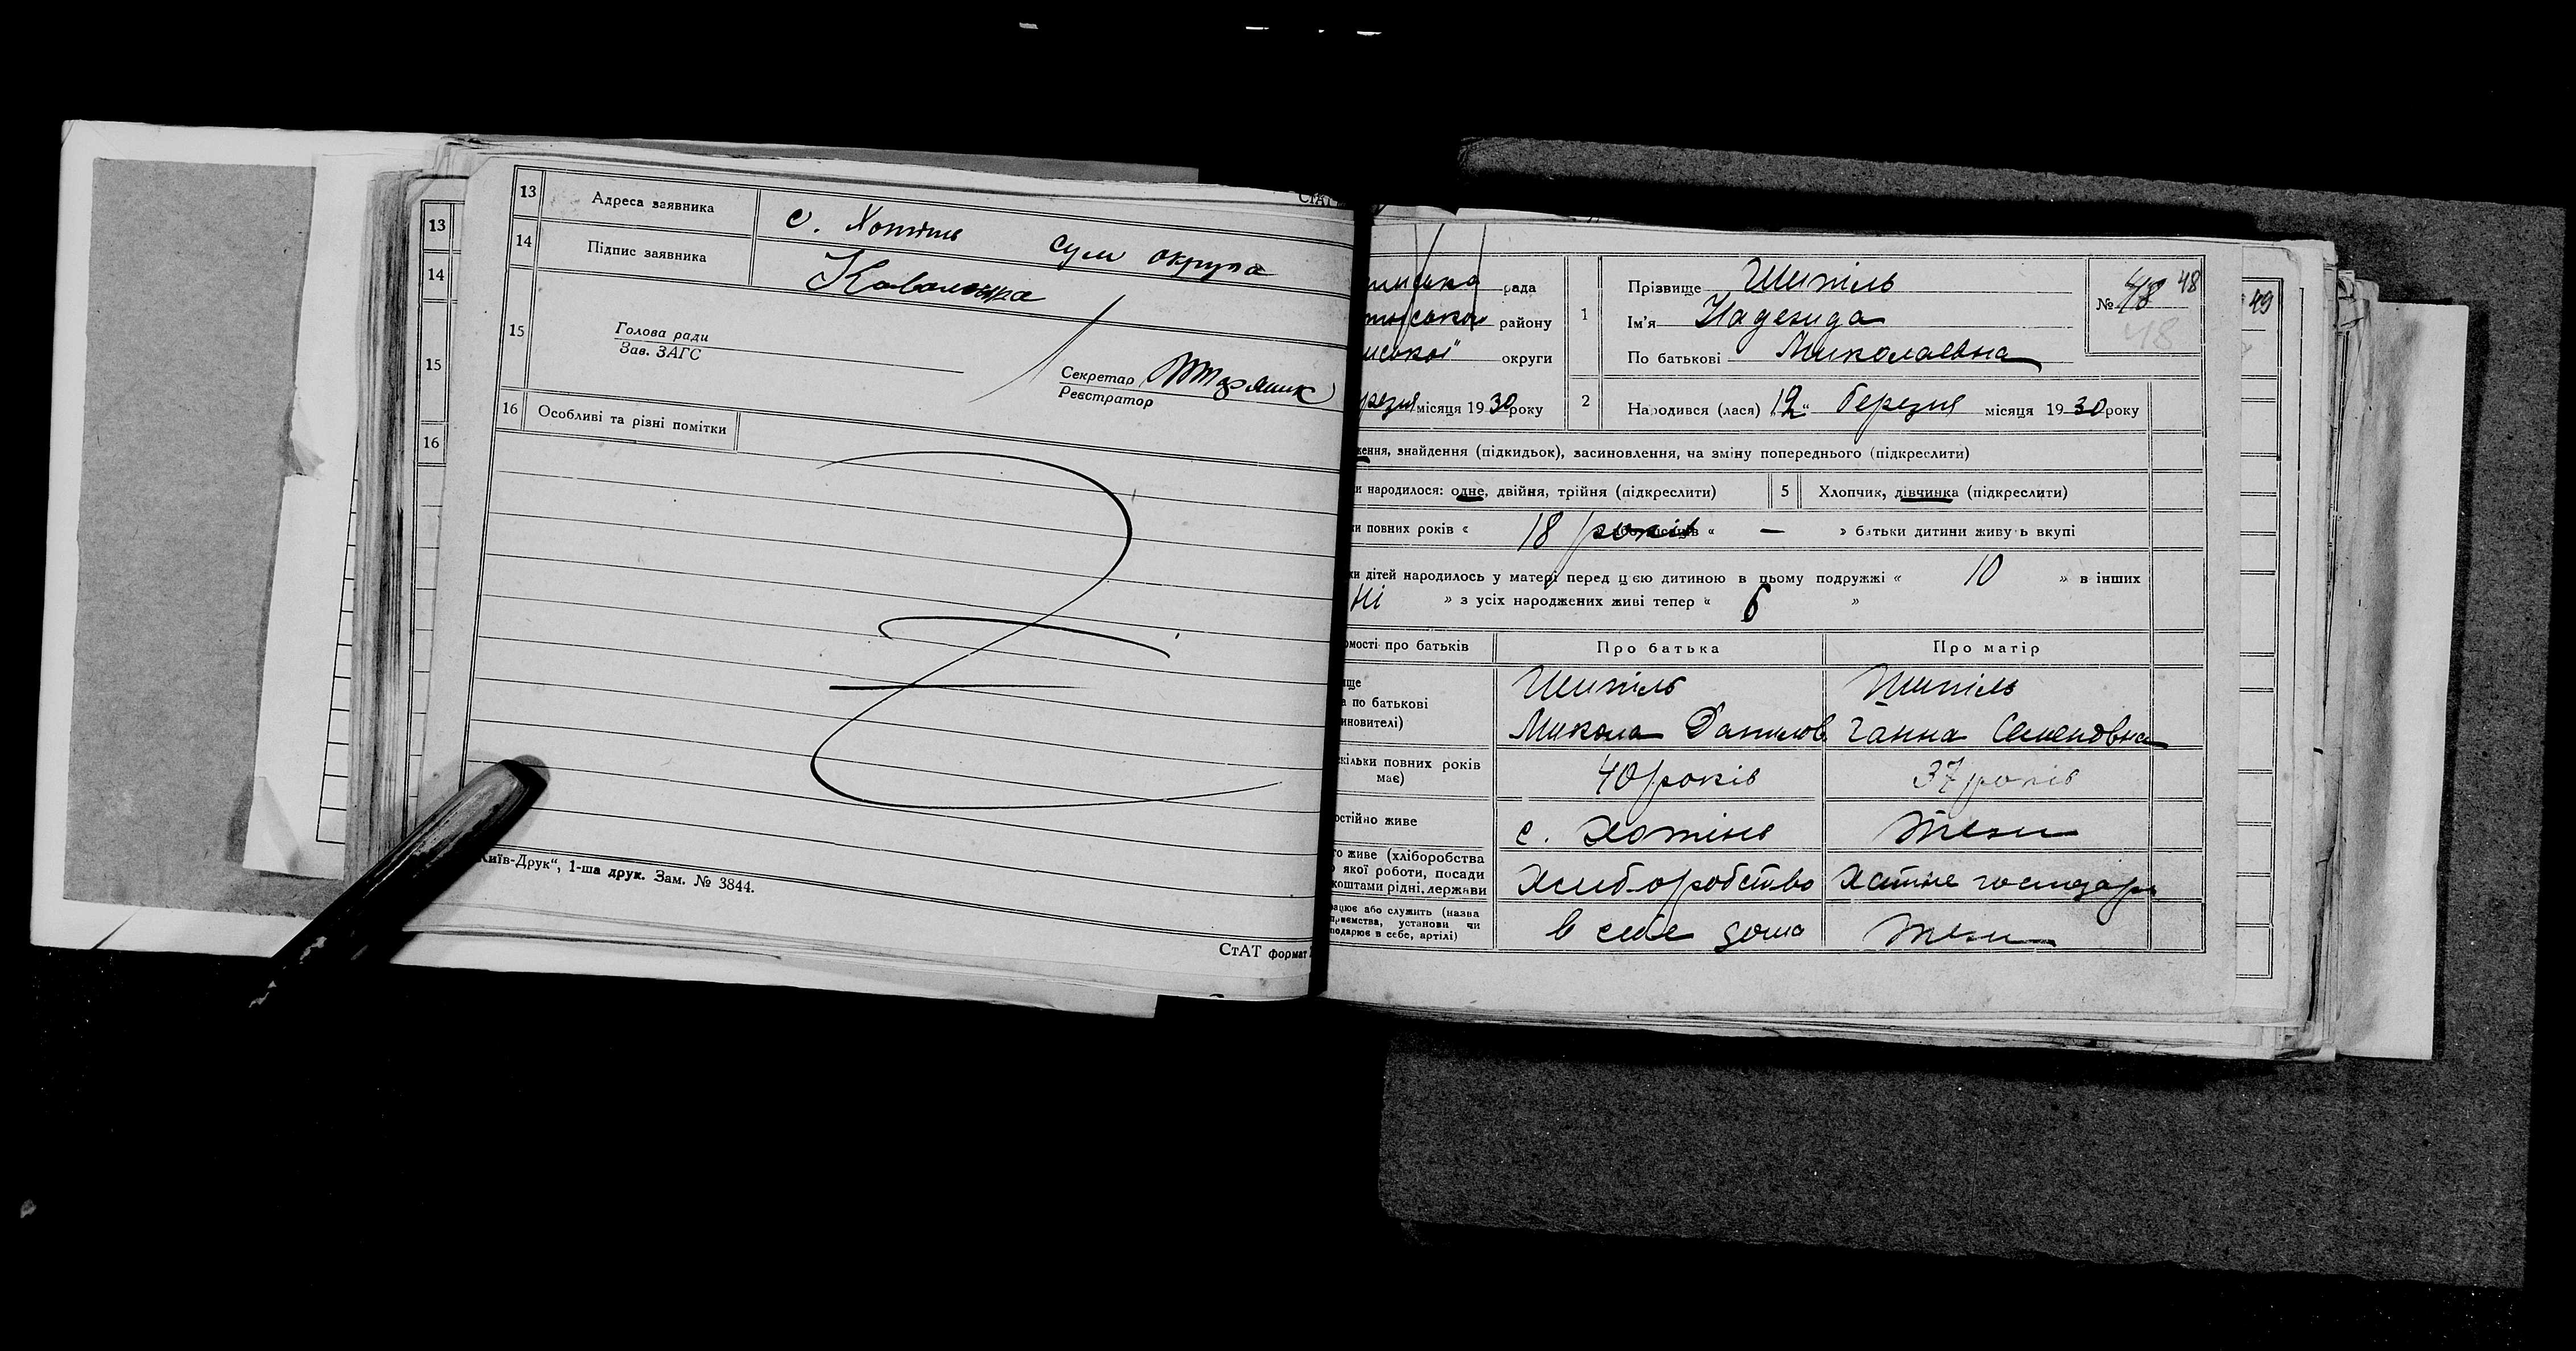 13 Адреса заявника с. Хотінь сум округа
14 Підпис заявника Ковальова
15 Голова ради
Зав. ЗАГС
Секретар
Реєстратор
16 Особливі та різні помітки
Київ-Друк“, 1-ша друк. Зам. № 3844.
СтАТ формат
13
14
15
16
рада
району
округи
місяця 1930 року
1 Прізвище Шипіль
Ім'я Надежида
По батькові Миколаевна
№ 48 48
48
49
2 Народився (лася) „12“ березня місяця 1930 року
ження, знайдення (підкидьок), засиновлення, на зміну попереднього (підкреслити)
и народилося: одне, двійня, трійня (підкреслити) 5 Хлопчик, дівчинка (підкреслити)
и повних років « 18 років « — » батьки дитини живуть вкупі
ки дітей народилось у матері перед цією дитиною в цьому подружжі « 10 » в інших
Ні » з усіх народжених живі тепер « 6 »
омості про батьків Про батька Про матір
ище
а по батькові
иновителі)
Шипіль Шипіль
Микола Данилов. Ганна Семеновна
скільки повних років
має) 40 років 37 років
остійно живе с. Хотінь Тежи
го живе (хліборобства
якої роботи, посади
коштами рідні, держави
Хліборобство Хатнє господар
рацює або служить (назва
приємства, установи чи
подарює в себе, артілі)
в себе дома Тежи